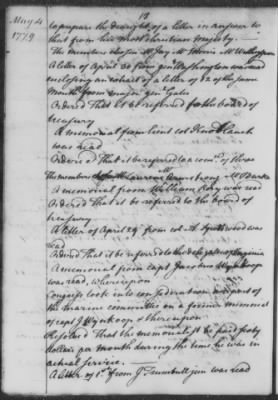 May 4
1779
to prepare the draught of a letter in answer to
that from his most christian majesty.
The members chosen Mr Jay Mr Morris Mr Witherspoon
A letter of April 30 from genl Washington was read
enclosing an extract of a letter of 22 of the same
Month from major genl Gates
Ordered That it be referred to the board of
treasury
A memorial from lieut col
was read
Ordered That it be referred to a comee of three
The members Laurens Armstrong Mr Burke
A memorial from William Rory was read
Ordered That it be referred to the board of
treasury
A letter of April 29 from col A. Spotswood was
read
Ordered That it be referred to the delegates of Virginia
A memorial from capt Jacobus Wynkoop
was read, whereupon
Congress took into consideration report of
the marine committee on a former memorial
of capt J Wynkoop & thereupon
Resolved That the memorialist be paid forty
dollars per month during the time he was in
actual service.
A letter of 1st from J Trumbull jun was read